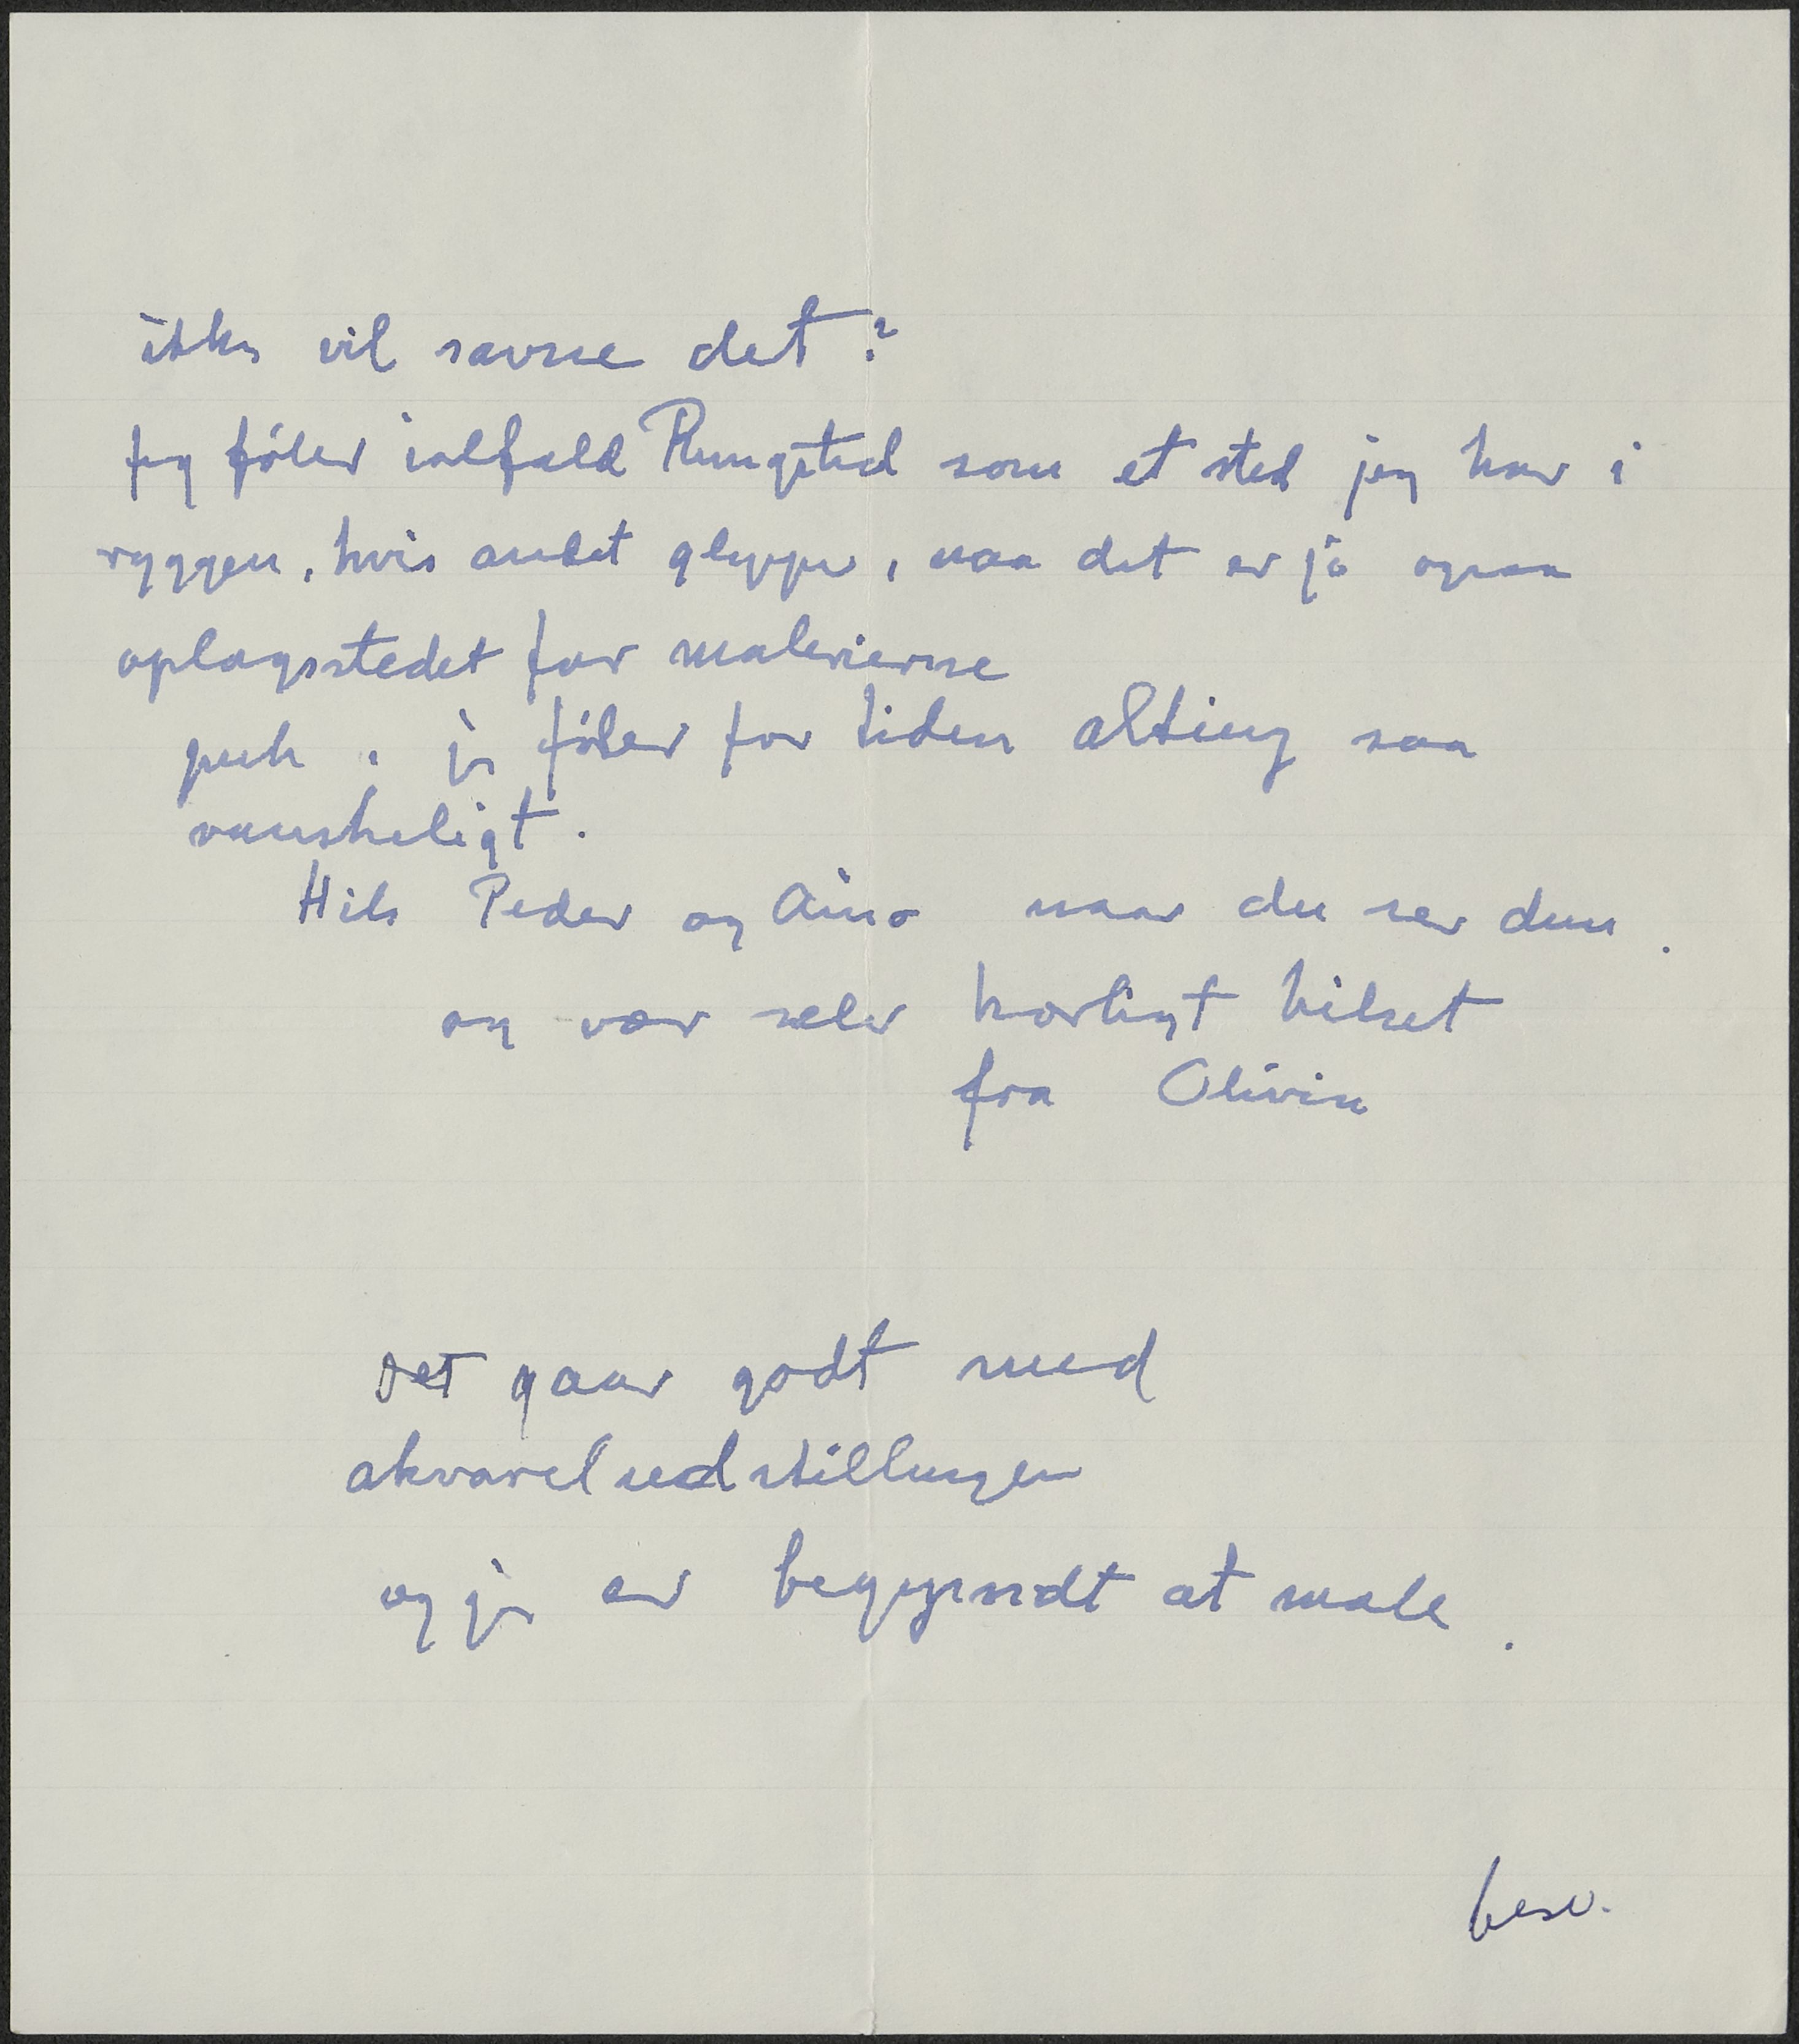 ikke vil savne det?
Jeg føler ialfald Rungsted som et sted jeg har i
ryggen, hvis andet glipper, naa det er jo ogsaa
oplagsstedet for malerierne
puh, jeg føler for tiden alting saa
vanskeligt.
Hils Peder og Aino naar du ser dem.
og vær selv kærligt hilset
fra Olivia
Det gaar godt med
akvareludstillingen
og jeg er begyndt at male.
besv.